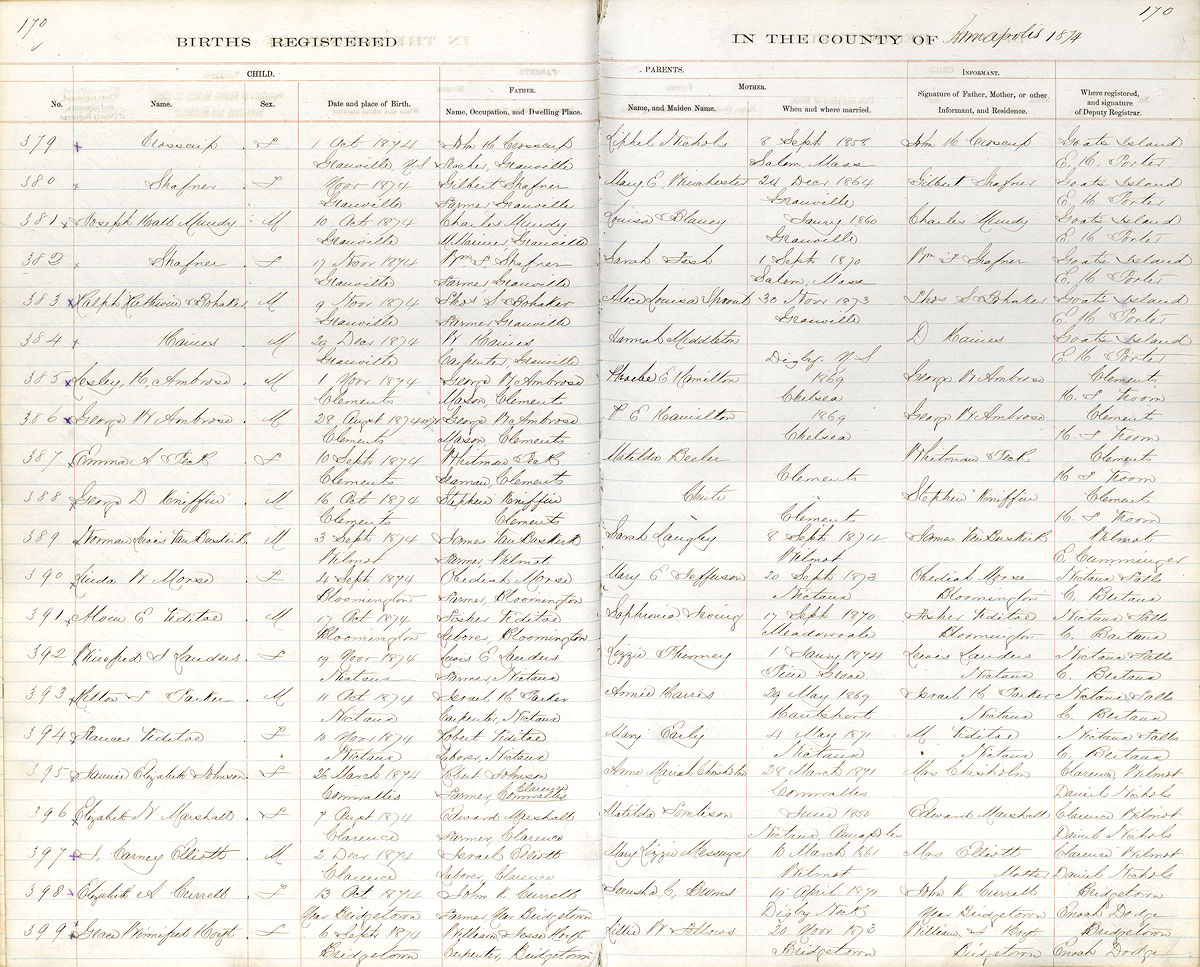 170
170
BIRTHS REGISTERED
IN THE COUNTY OF Annapolis 1874
CHILD.
PARENTS.
No.
Name.
Sex.
Date and place of Birth.
FATHER.
Name, Occupation, and Dwelling Place.
MOTHER.
Name, and Maiden Name.
When and where married.
INFORMANT.
Signature of Father, Mother, or other
Informant, and Residence.
Where registered,
and signature
of Deputy Registrar.
379 Crosscup F 1 Oct 1874 John H Crosscup Nichols 8 Sept 1858 John H Croscup Goats Island
Granville, N S Granville Salem Mass E. H. Porter
380 Shafner F Novr 1874 Gilbert Shafner Mary E. Winchester 24 Decr 1864 Gilbert Shafner Goats Island
Granville Farmer Granville Granville E. H. Porter
381 Joseph Hall Mundy M 10 Oct 1874 Charles Mundy Louisa Blaney Janry 1860 Charles Mundy Goats Island
Granville Granville Granville E. H. Porter
382 Shafner F 17 Novr 1874 Wm F Shafner Sarah 1 Sept 1870 Wm F Shafner Goats Island
Granville Farmer Granville Salem, Mass E. H. Porter
383 Ralph Bohaker M 9 Novr 1874 Thos S Bohaker Alice Louisa Sproul 30 Novr 1873 Thos S Bohaker Goats Island
Granville Farmer Granville Granville E. H. Porter
384 Haines M 29 Decr 1874 W Haines Hannah Middleton D Haines Goats Island
Granville Carpenter Granville Digby, N S E H Porter
385 Lesley H Ambrose M 1 Novr 1874 George W Ambrose Phoebe E Hamilton 1869 George W Ambrose Clements
Clements Mason Clements Chelsea H. F Troom
386 George W Ambrose M 28 Augt 1874 George W Ambrose P E Hamilton 1869 George W Ambrose Clements
Clements Mason Clements Chelsea H. F Troom
387 Emma A Peck F 10 Sept 1874 Whitman Peck Matilda Beeler Whitman Peck Clements
Clements Seaman Clements Clements H F Troom
388 George D Kniffin M 16 Oct 1874 Stephen Kniffin Chute Stephen Kniffin Clements
Clements Clements Clements H. F Troom
389 Norman Lewis Van Buskirk M 3 Sept 1874 James Van Buskirk Sarah Langley 8 Sept 1874 James Van Buskirk Wilmot
Wilmot Farmer Wilmot Wilmot E Cumminger
390 Linda W Morse F 4 Sept 1874 Obediah Morse Mary E Jefferson 20 Sept 1873 Obediah Morse Nictaux Falls
Bloomington Farmer, Bloomington Nictaux Bloomington C. Bertaux
391 E Viditoe M 17 Oct 1874 Fisher Viditoe Sophronia Irving 17 Sept 1870 Fisher Viditoe Nictaux Falls
Bloomington Laborer, Bloomington Meadowvale Bloomington C. Bertaux
392 Winefred S Landers F 19 Novr 1874 Lewis E Landers Lizzie Phinney 1 Janry 1874 Lewis Landers Nictaux Falls
Nictaux Farmer, Nictaux Pine Grove Nictaux C. Bertaux
393 Parker M 11 Oct 1874 Israel H Parker Annie Harris 29 May 1869 Israel H Parker Nictaux Falls
Nictaux Carpenter, Nictaux Hantsport Nictaux C. Bertaux
394 Frances Viditoe F 10 Novr 1874 Robert Viditoe Mary Early 4 May 1871 M Viditoe Nictaux Falls
Nictaux Laborer Nictaux Nictaux Nictaux C Bertaux
395 Elizabeth Johnson F 26 March 1874 Johnson Anna Mariah Chisholm 28 March 1871 Mrs Chisholm Clarence Wilmot
Cornwallis Farmer Cornwallis Clarence Cornwallis Daniel Nichols
396 Elizabeth N Marshall F 7 Augt 1874 Edward Marshall Matilda Tomlison June 1860 Edward Marshall Clarence Wilmot
Clarence Farmer Clarence Nictaux Annapolis Daniel Nichols
397 Carney Elliott M 2 Decr 1874 Israel Elliott Mary Lizzie Messenger March 1861 Mrs Elliott Clarence Wilmot
Clarence Laborer, Clarence Wilmot Mother Daniel Nichols
398 Elizabeth A Currell F 13 Oct 1874 John K Currell Jerusha C, Burns 19 April 1871 John K. Currell Bridgetown
Near Bridgetown Farmer Near Bridgetown Digby Neck Near Bridgetown Enoch Dodge
399 Grace Winnifred Hoyt F 6 Sept 1874 William Jesse Hoyt Lillie W Fellows 20 Novr 1873 William J Hoyt Bridgetown
Bridgetown Carpenter, Bridgetown Bridgetown Bridgetown Enoch Dodge